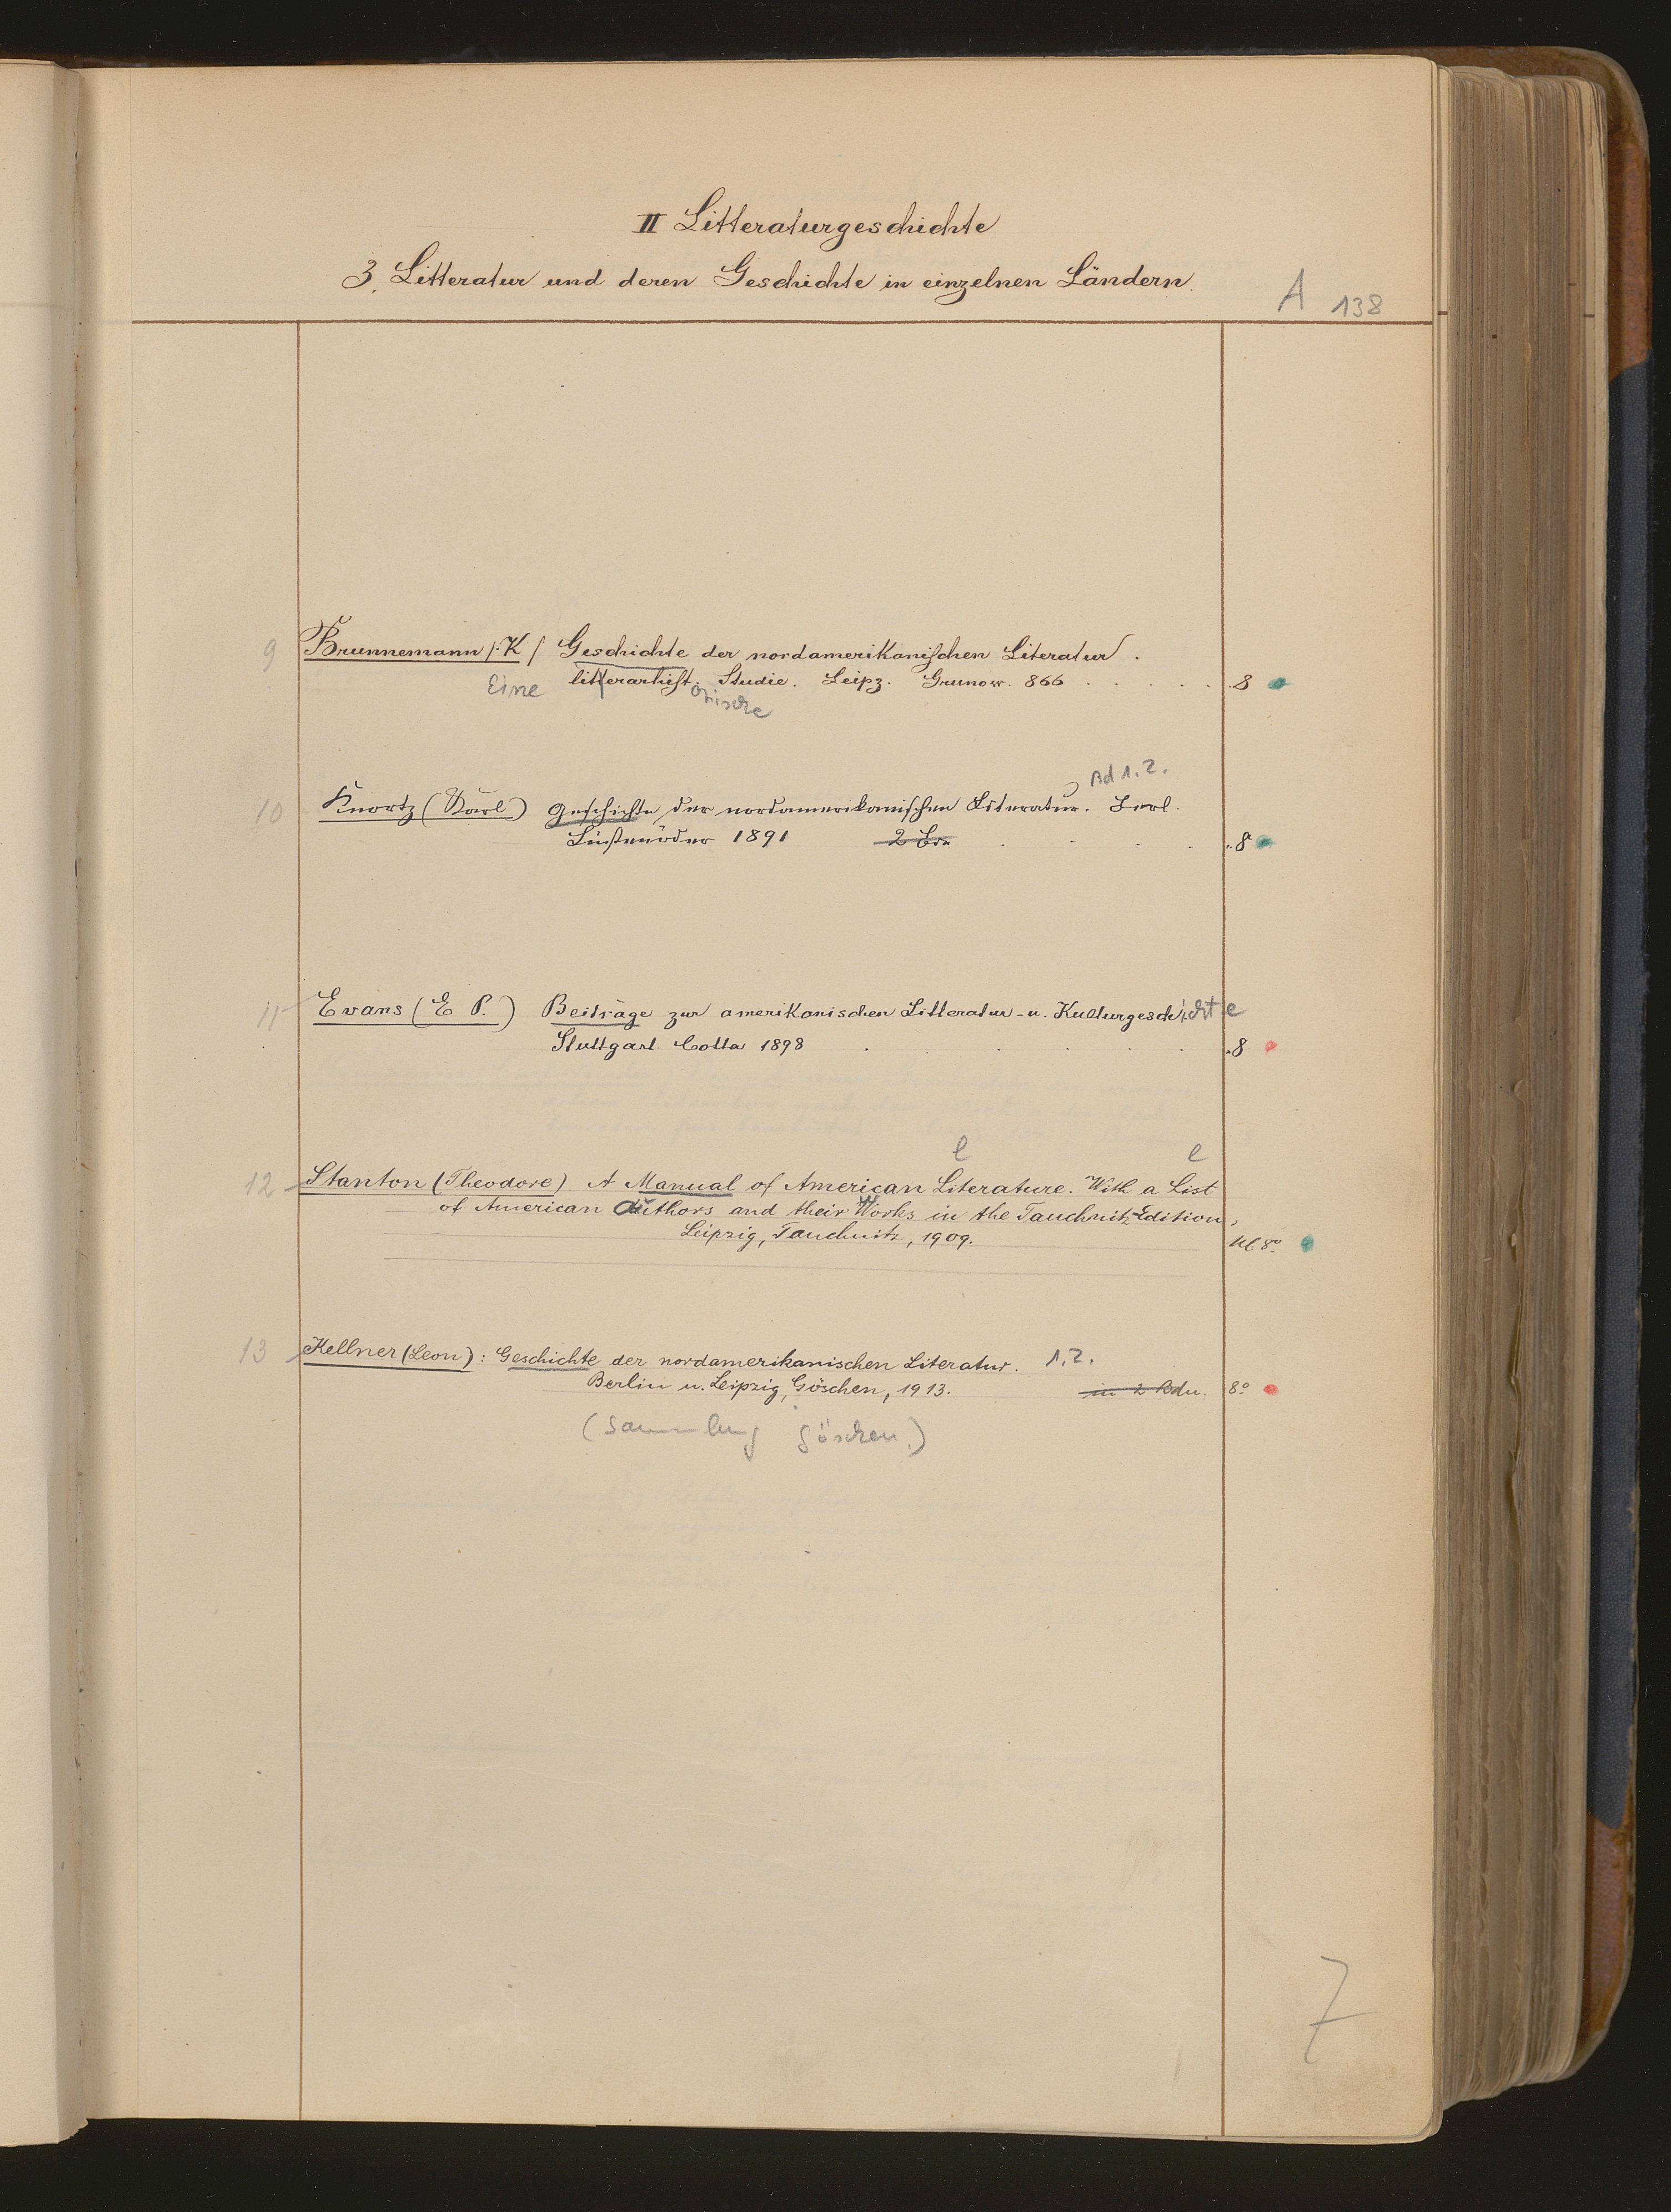 II Litteraturgeschichte
3. Litteratur und deren Geschichte in einzelnen Ländern.
A 138
9 Brunnemann /K/ Geschichte der nordamerikanischen Literatur.
Eine litterarhist. orische Studie. Leipz. Grunow. 866 . . . . . 8
Bd 1.2.
10 Knortz (Karl) Geschichte der nordamerikanischen Literatur. Berl.
Lüstenöder 1891 2 Bde . . . . 8°
11 Evans (E P.) Beiträge zur amerikanischen Litteratur- u. Kulturgeschichte
Stuttgart. Cotta 1898 . . . . . . 8
l l
12 Stanton (Theodore) A Manual of American Literature. With a List
of American Authors and their Works in the Tauchnitz Edition,
Leipzig, Tauchnitz, 1909. Kl 8°
13 Kellner (Leon): Geschichte der nordamerikanischen Literatur. 1.2.
Berlin u. Leipzig, Göschen, 1913. in 2 Bdn. 8°
(Sammlung Göschen.)
7